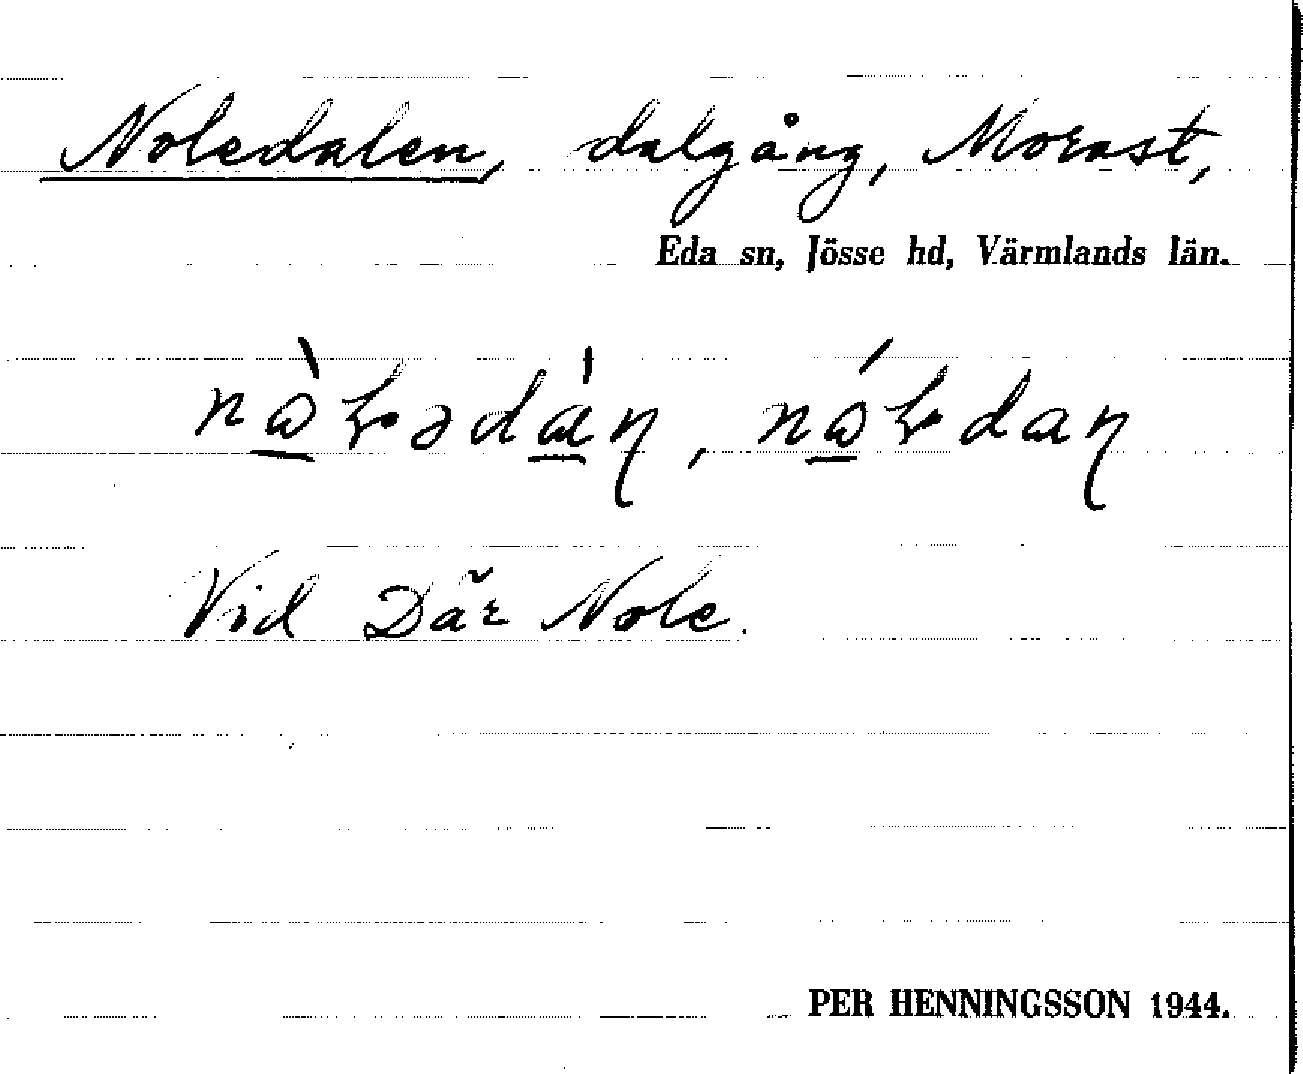 Noledalen, dalgång, Morast,
Eda sn, Jösse hd, Värmlands län.
Vid Där Nole.
PER HENNINGSSON 1944.